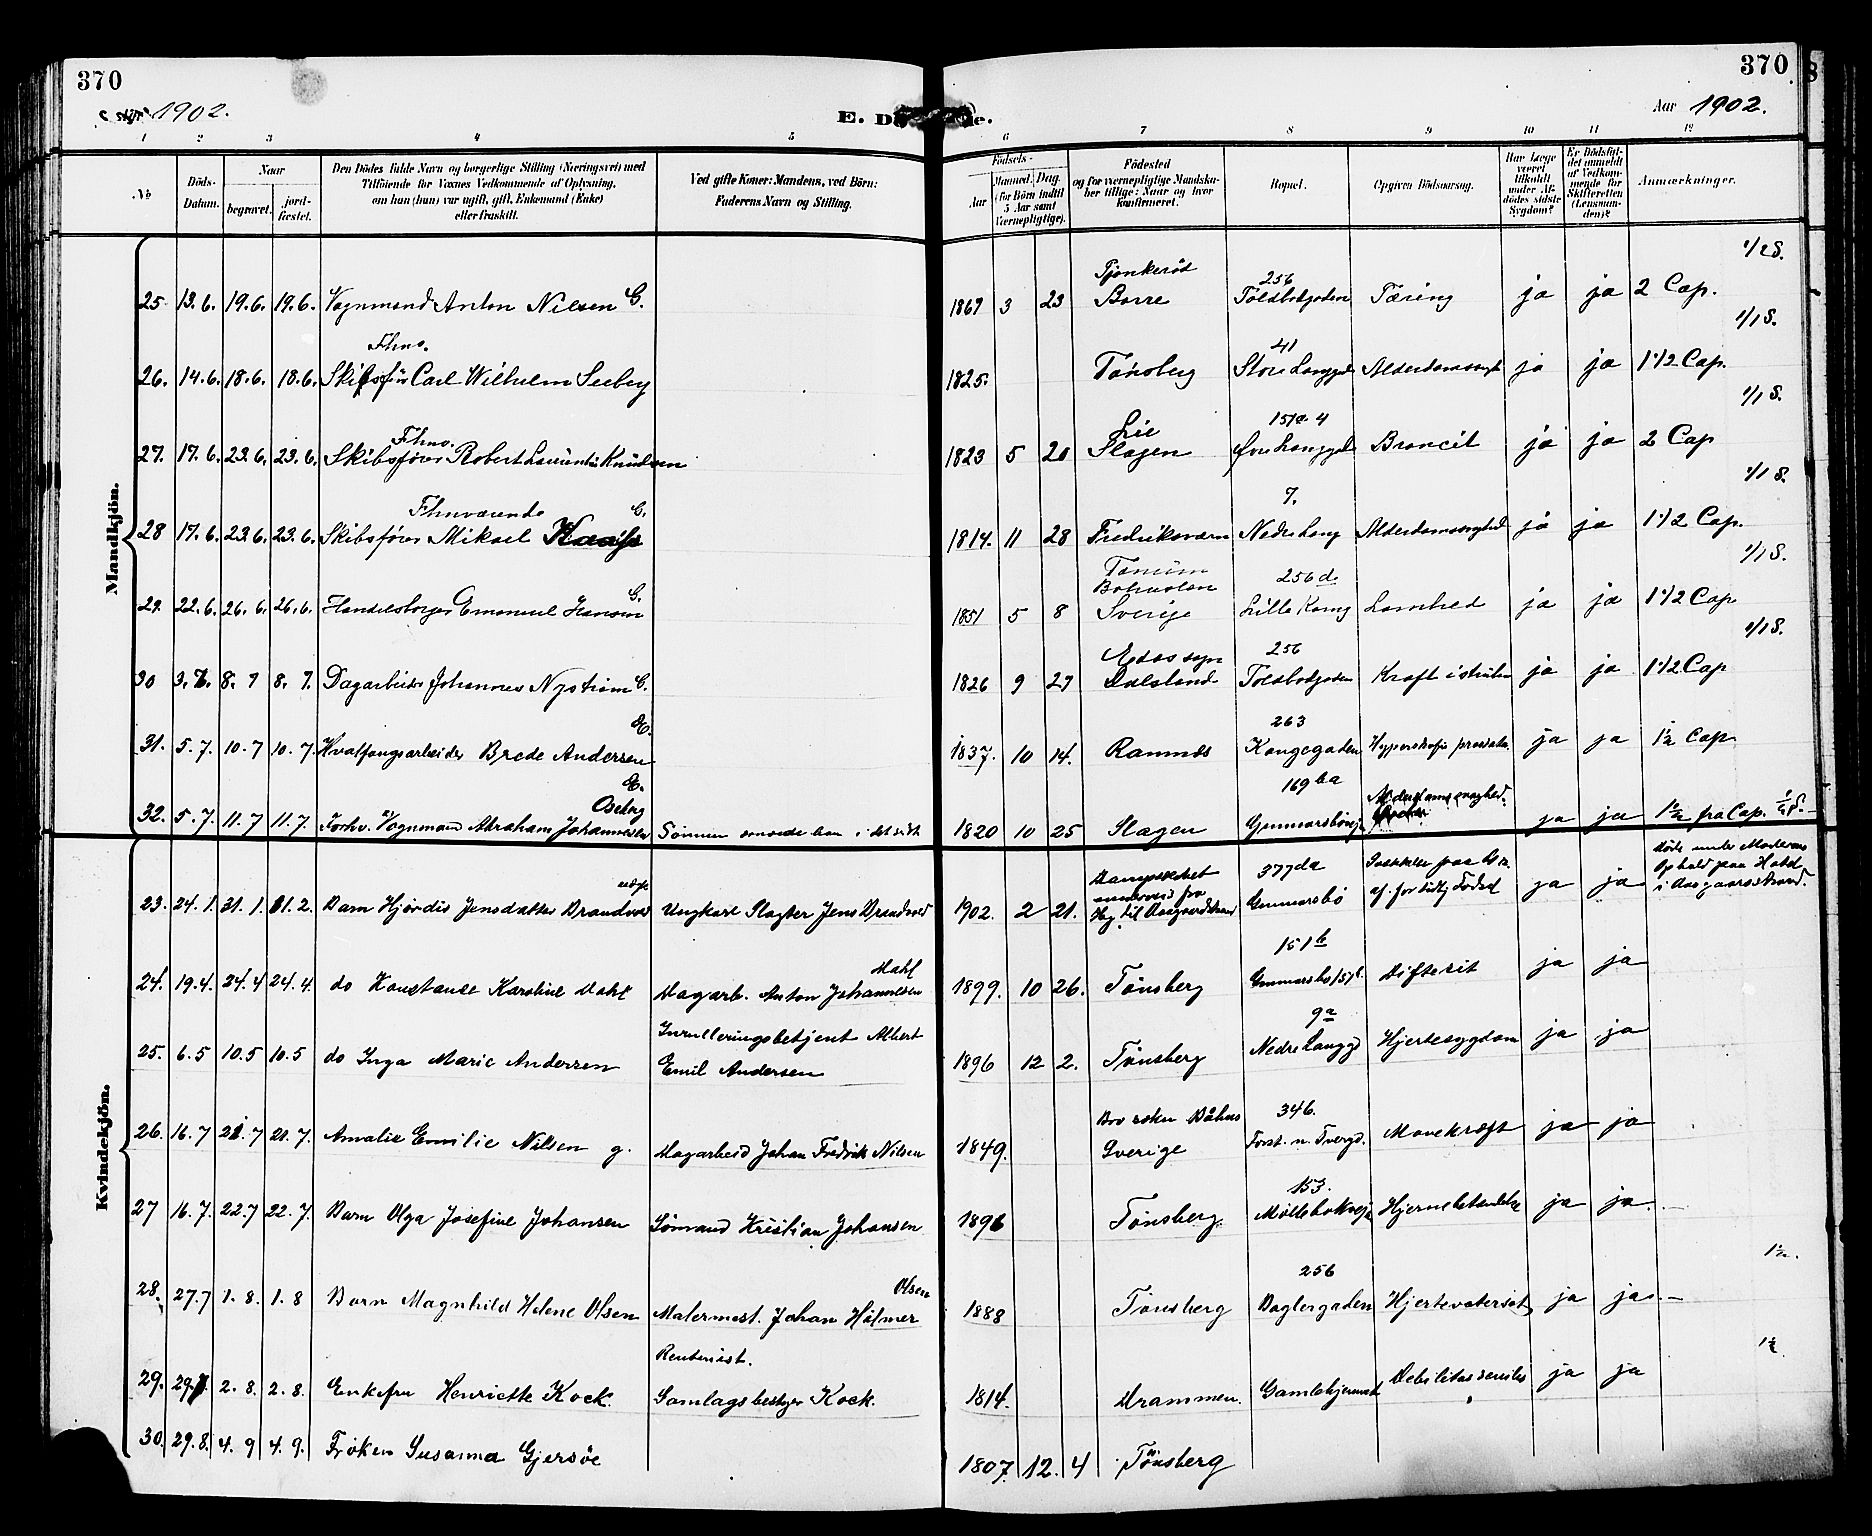 370
370
1902.
Aar 1902.
E. Dö
e.
1 2 3 4 5 6 7 8 9 10 11 12
No
Döds-Datum.
Naar
begravet.
jord-fæstet.
Den Dödes fulde Navn og borgerlige Stilling (Næringsvei) med
Tilföiende for Voxnes Vedkommende af Oplysning,
om han (hun) var ugift, gift, Enkemand (Enke)
eller fraskilt.
Ved gifte Koner: Mandens, ved Börn:
Faderens Navn og Stilling.
Födsels-
Aar
Maaned. Dag.
(for Börn indtil
5 Aar samt
Værnepligtige).
Födested
og for værnepligtige Mandska-
ber tillige: Naar og hvor
konfirmeret.
Bopæl.
Opgiven Dödsaarsag.
Har Læge
været
tilkaldt
under Af-
dödes sidste
Sygdom?
Er Dödsfal-
det anmeldt
af Vedkom-
mende for
Skifteretten
(Lensman-
den)?
Anmærkninger.
Mandkjön.
1/2 S.
Borre 256
25. 13.6. 19.6. 19.6. Vognmand Anton Nilsen G. 1867 3 23 Toldbodgaden Tæring ja ja 2 Cap.
1/1 S.
Fhv. 41
26. 14.6. 18.6. 18.6. Skibsfør Carl Wilhelm Seeberg 1825. Tønsberg Store Langgd Alderdomssvagh ja ja 1 1/2 Cap.
1/1 S.
Fhv. 151a 4
27. 17.6. 23.6. 23.6. Skibsfører Robert Laurentius Knudsen 1823 5 20 Slagen Øvre Langgd Broncit ja ja 2 Cap
1/1 S.
Fhnværende G. 7.
28 17.6. 23.6. 23.6. Skibsfører Mikael 1814. 11 28 Fredriksværn Nedre Lang Alderdomssvaghed ja ja 1 1/2 Cap.
1/1 S.
Tanum
Bohuslen 256 d.
29. 22.6. 26.6. 26.6. Handelsborger Emanuel Hansen G. 1851 5 8 Sverige Lille Kong Lamhed ja ja 1 1/2 Cap
1/1 S.
256
30 3.7. 8.7 8.7. Dagarbeider Johannes Nystrøm G. 1826 9 27 Dalsland Toldbodgaden Kræft i struben ja ja 1 1/2 Cap
E. 263
31. 5.7. 10.7 10.7. Hvalfangsarbeider Brede Andersen 1837. 10 14. Ramnes Kongegaden Hypertrofia prostata ja ja 1 1/2 Cap
E.
Oseberg 169 ba Alderdomssvaghed.
32. 5.7. 11.7 11.7. Forhv. Vognmand Abraham Johannesen Sønnen 1820 10 25 Slagen Gunnarsbøvej ja ja 1 1/2 fra Cap.
Kvindekjön.
Døde under Moderens
Ophold paa Hotel
i Aasgaardsstrand.
Dampskibet
underveis fra
Hg. til Aasgaardstrand
377 da
23. 24.1. 31.1. Barn Hjørdis Jensdatter Brandvold Ungkarl Slagter Jens Brandvold 1902. 2 21. Gunnarsbø af for tidlig Fødsel ja ja
Dahl 151 b
24. 19.4. 24.4 24.4. do Konstanse Karoline Dahl Dagarb. Anton Johannesen 1899. 10 26. Tønsberg Gunnarsbo Difterit ja ja
Inrulleringsbetjent Albert 9a
25. 6.5 10.5 10.5 do Inga Marie Andersen Emil Andersen 1896 12 2. Tønsberg Nedre Langgd Hjertesygdom ja ja
346.
26. 16.7 21.7 21.7. Amalie Emilie Nilsen g. Dagarbeid Johan Fredrik Nilsen 1849. Sverige Mavekræft ja ja
153.
27 16.7. 22.7 22.7. Barn Olga Josefine Johansen Sømand Kristian Johansen 1896 Tønsberg. Møllebakvej Hjernebetændelse ja ja
1 1/2.
Olsen 256
28. 27.7 1.8. 1.8 Barn Magnhild Helene Olsen Malermest. Johan Holmer 1888 Tønsberg Baglergaden ja ja
Rentenist.
1 1/2
29. 29.7. 2.8. 2.8. Enkefru Henriette Kock. Samlagsbestyrer Kock. 1814. Drammen. Gamlehjemmet Debilitas senilis ja ja
30. 29.8. 4.9 4.9. Frøken Susanna Gjersøe 1807. 12. 4 Tønsberg